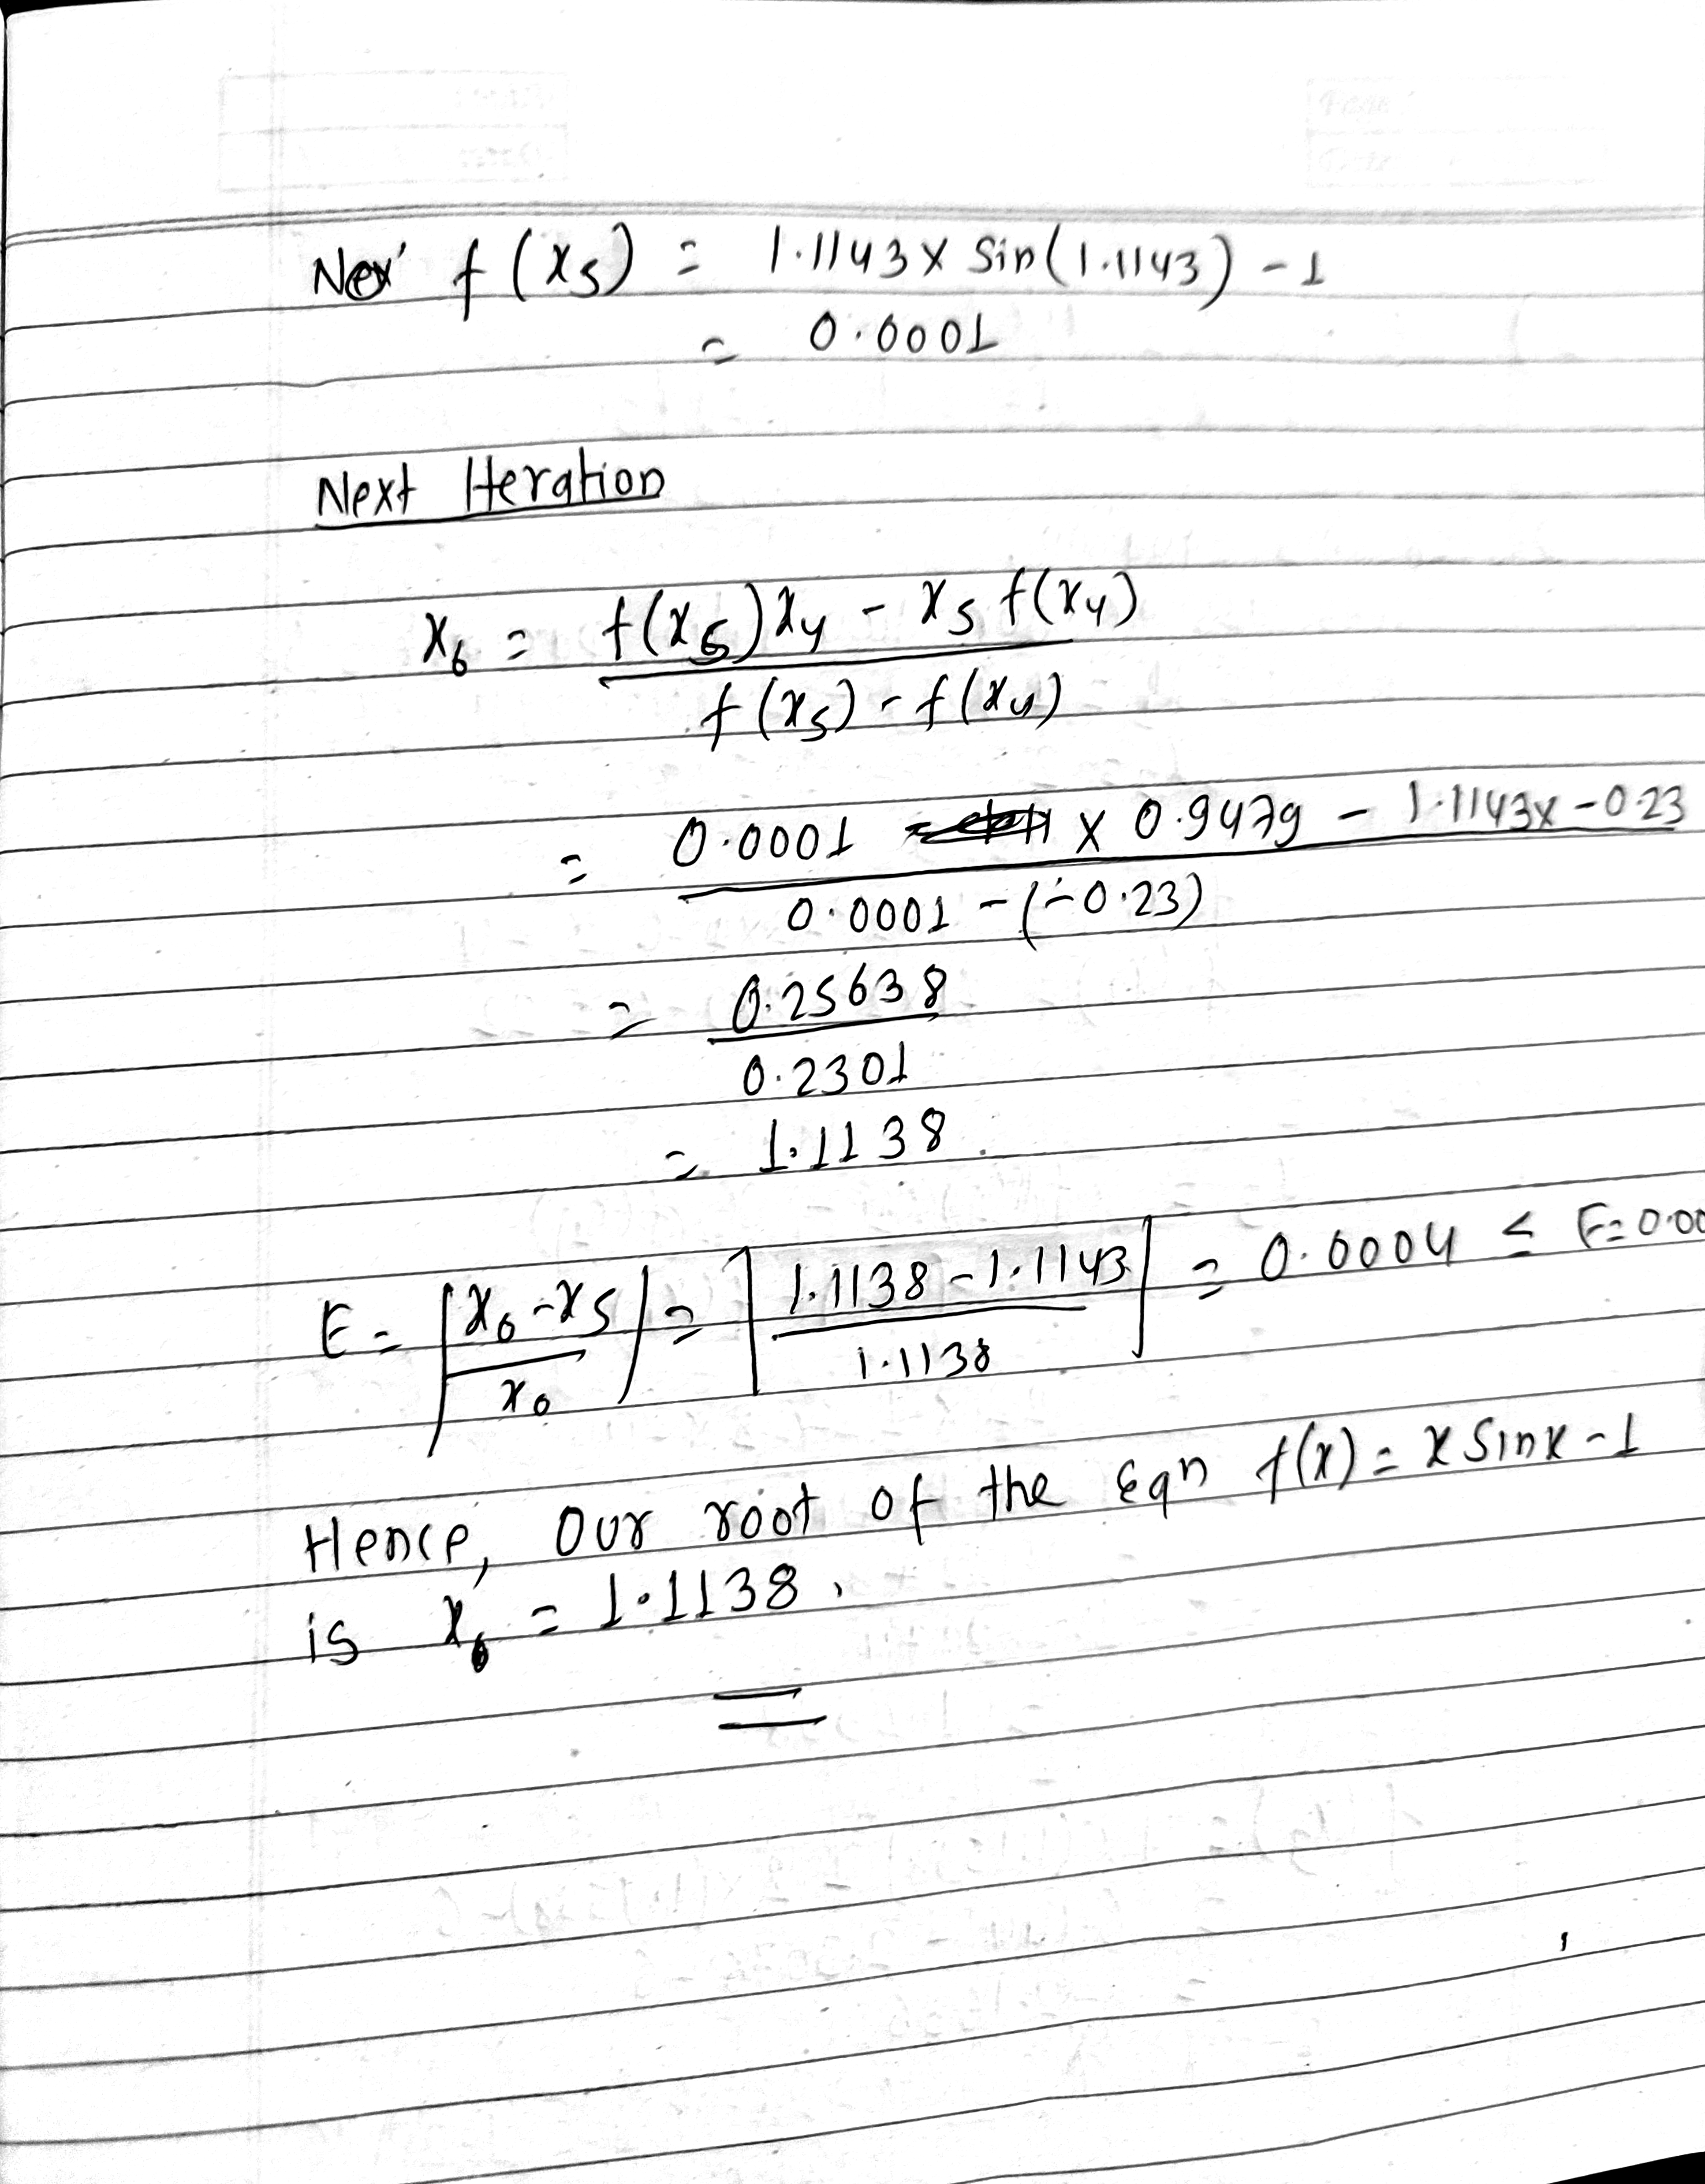 f(x5) = 1.1143 x Sin(1.1143) - 1
= 0.0001
Next Iteration
x6 = f(x5)x4 - x5 f(x4)
f(x5) - f(x4)
= 0.0001 x 0.9479 - 1.1143x - 0.23
0.0001 - (-0.23)
= 0.25638
0.2301
= 1.1138
E = |x6 - x5| = |1.1138 - 1.1143| = 0.0004 ≤ E = 0.00
x6 1.1138
Hence, Our root of the Eqn f(x) = x Sinx - 1
is x6 = 1.1138.